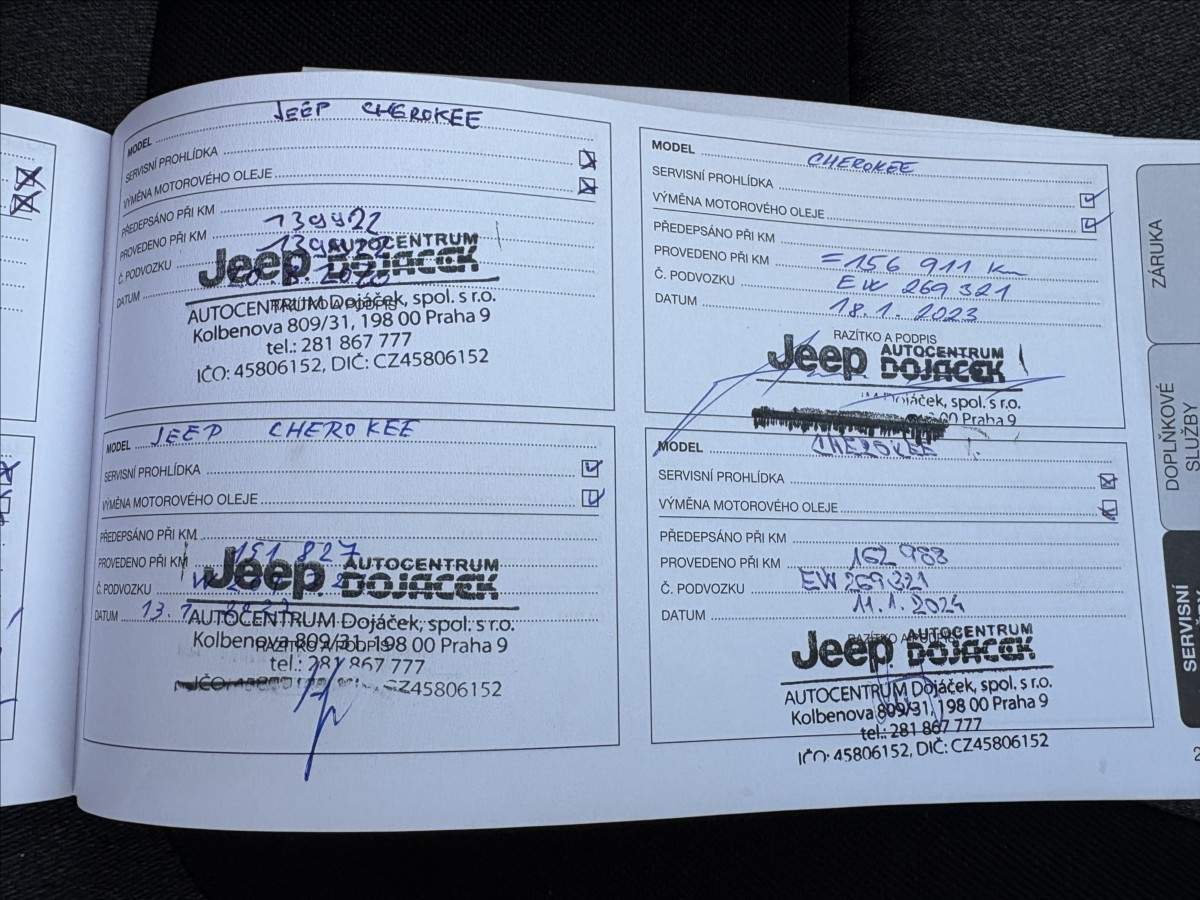 JEEP CHEROKEE
MODEL
SERVISNÍ PROHLÍDKA
VÝMĚNA MOTOROVÉHO OLEJE
PŘEDEPSÁNO PŘI KM 139922
PROVEDENO PŘI KM
Č. PODVOZKU
DATUM 2020
Jeep AUTOCENTRUM
DOJÁČEK
RAZÍTKO A PODPIS
AUTOCENTRUM Dojáček, spol. s r.o.
Kolbenova 809/31, 198 00 Praha 9
tel.: 281 867 777
IČO: 45806152, DIČ: CZ45806152
MODEL JEEP CHEROKEE
SERVISNÍ PROHLÍDKA
VÝMĚNA MOTOROVÉHO OLEJE
PŘEDEPSÁNO PŘI KM
PROVEDENO PŘI KM 151 827
Č. PODVOZKU
DATUM 13.
Jeep AUTOCENTRUM
DOJÁČEK
AUTOCENTRUM Dojáček, spol. s r.o.
Kolbenova 809/31, 198 00 Praha 9
RAZÍTKO A PODPIS
tel.: 281 867 777
IČO: CZ45806152
MODEL CHEROKEE
SERVISNÍ PROHLÍDKA
VÝMĚNA MOTOROVÉHO OLEJE
PŘEDEPSÁNO PŘI KM
PROVEDENO PŘI KM =156 911 km
Č. PODVOZKU EW 269 321
DATUM 18.1. 2023
RAZÍTKO A PODPIS
Jeep AUTOCENTRUM
DOJÁČEK
Dojáček, spol. s r.o.
00 Praha 9
MODEL CHEROKEE
SERVISNÍ PROHLÍDKA
VÝMĚNA MOTOROVÉHO OLEJE
PŘEDEPSÁNO PŘI KM
PROVEDENO PŘI KM 162 983
Č. PODVOZKU EW 269321
DATUM 11.1.2024
RAZÍTKO A PODPIS
Jeep AUTOCENTRUM
DOJÁČEK
AUTOCENTRUM Dojáček, spol. s r.o.
Kolbenova 809/31, 198 00 Praha 9
tel.: 281 867 777
IČO: 45806152, DIČ: CZ45806152
ZÁRUKA
DOPLŇKOVÉ
SLUŽBY
SERVISNÍ
2